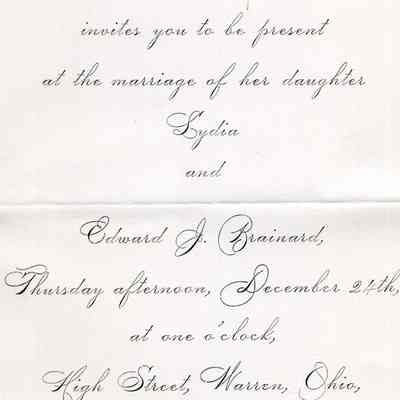 invites you to be present
at the marriage of her daughter
Lydia
and
Edward J. Brainard,
Thursday afternoon, December 24th,
at one o'clock,
High Street, Warren, Ohio,